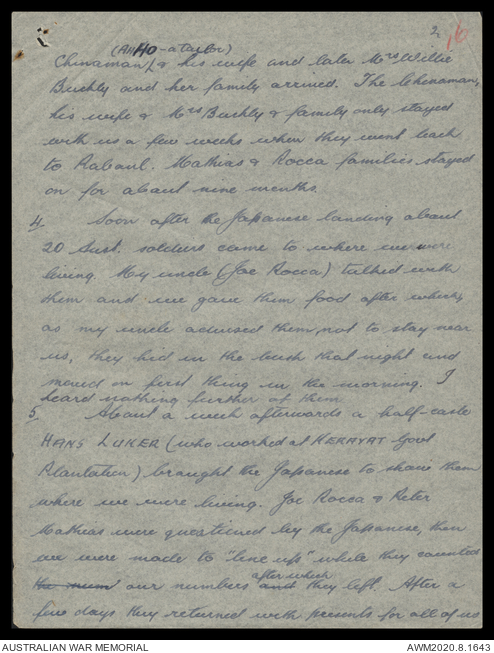 2
16
(AH HO - a taylor)
Chinaman/ & his wife and later Mrs Willie
Buchly and her family arrived. The Chinaman,
his wife & Mrs Buchly & family only stayed
with us a few weeks when they went back
to Rabaul. Mathias & Rocca families stayed
on for about nine months.
4. Soon after the Japanese landing about
20 Aust. soldiers came to where we were
living. My uncle (Joe Rocca) talked with
them and we gave them food after which,
as my uncle advised them not to stay near
us, they hid in the bush that night and
moved on first thing in the morning. I
heard nothing further of them.
5. About a week afterwards a half-caste
HANS LUKER (who worked at KERAVAT Govt
Plantation) brought the Japanese to show them
where we were living. Joe Rocca & Peter
Mathias were questioned by the Japanese, then
we were made to "line up" while they counted
the num our numbers after which and they left. After a
few days they returned with presents for all of us
AUSTRALIAN WAR MEMORIAL
AWM2020.8.1643